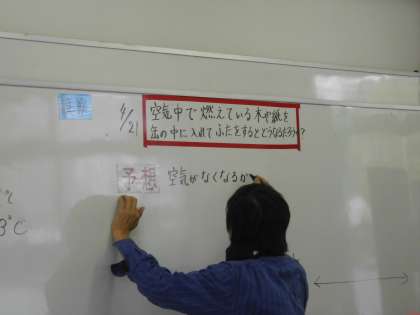 4/21
空気中で燃えている木や紙を
缶の中に入れてふたをするとどうなるだろうか?
予想
空気がなくなるか
3℃